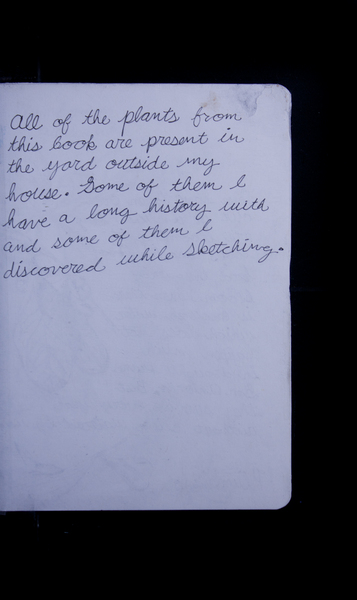 All of the plants from
this book are present in
the yard outside my
house. Some of them I
have a long history with
and some of them I
discovered while sketching.